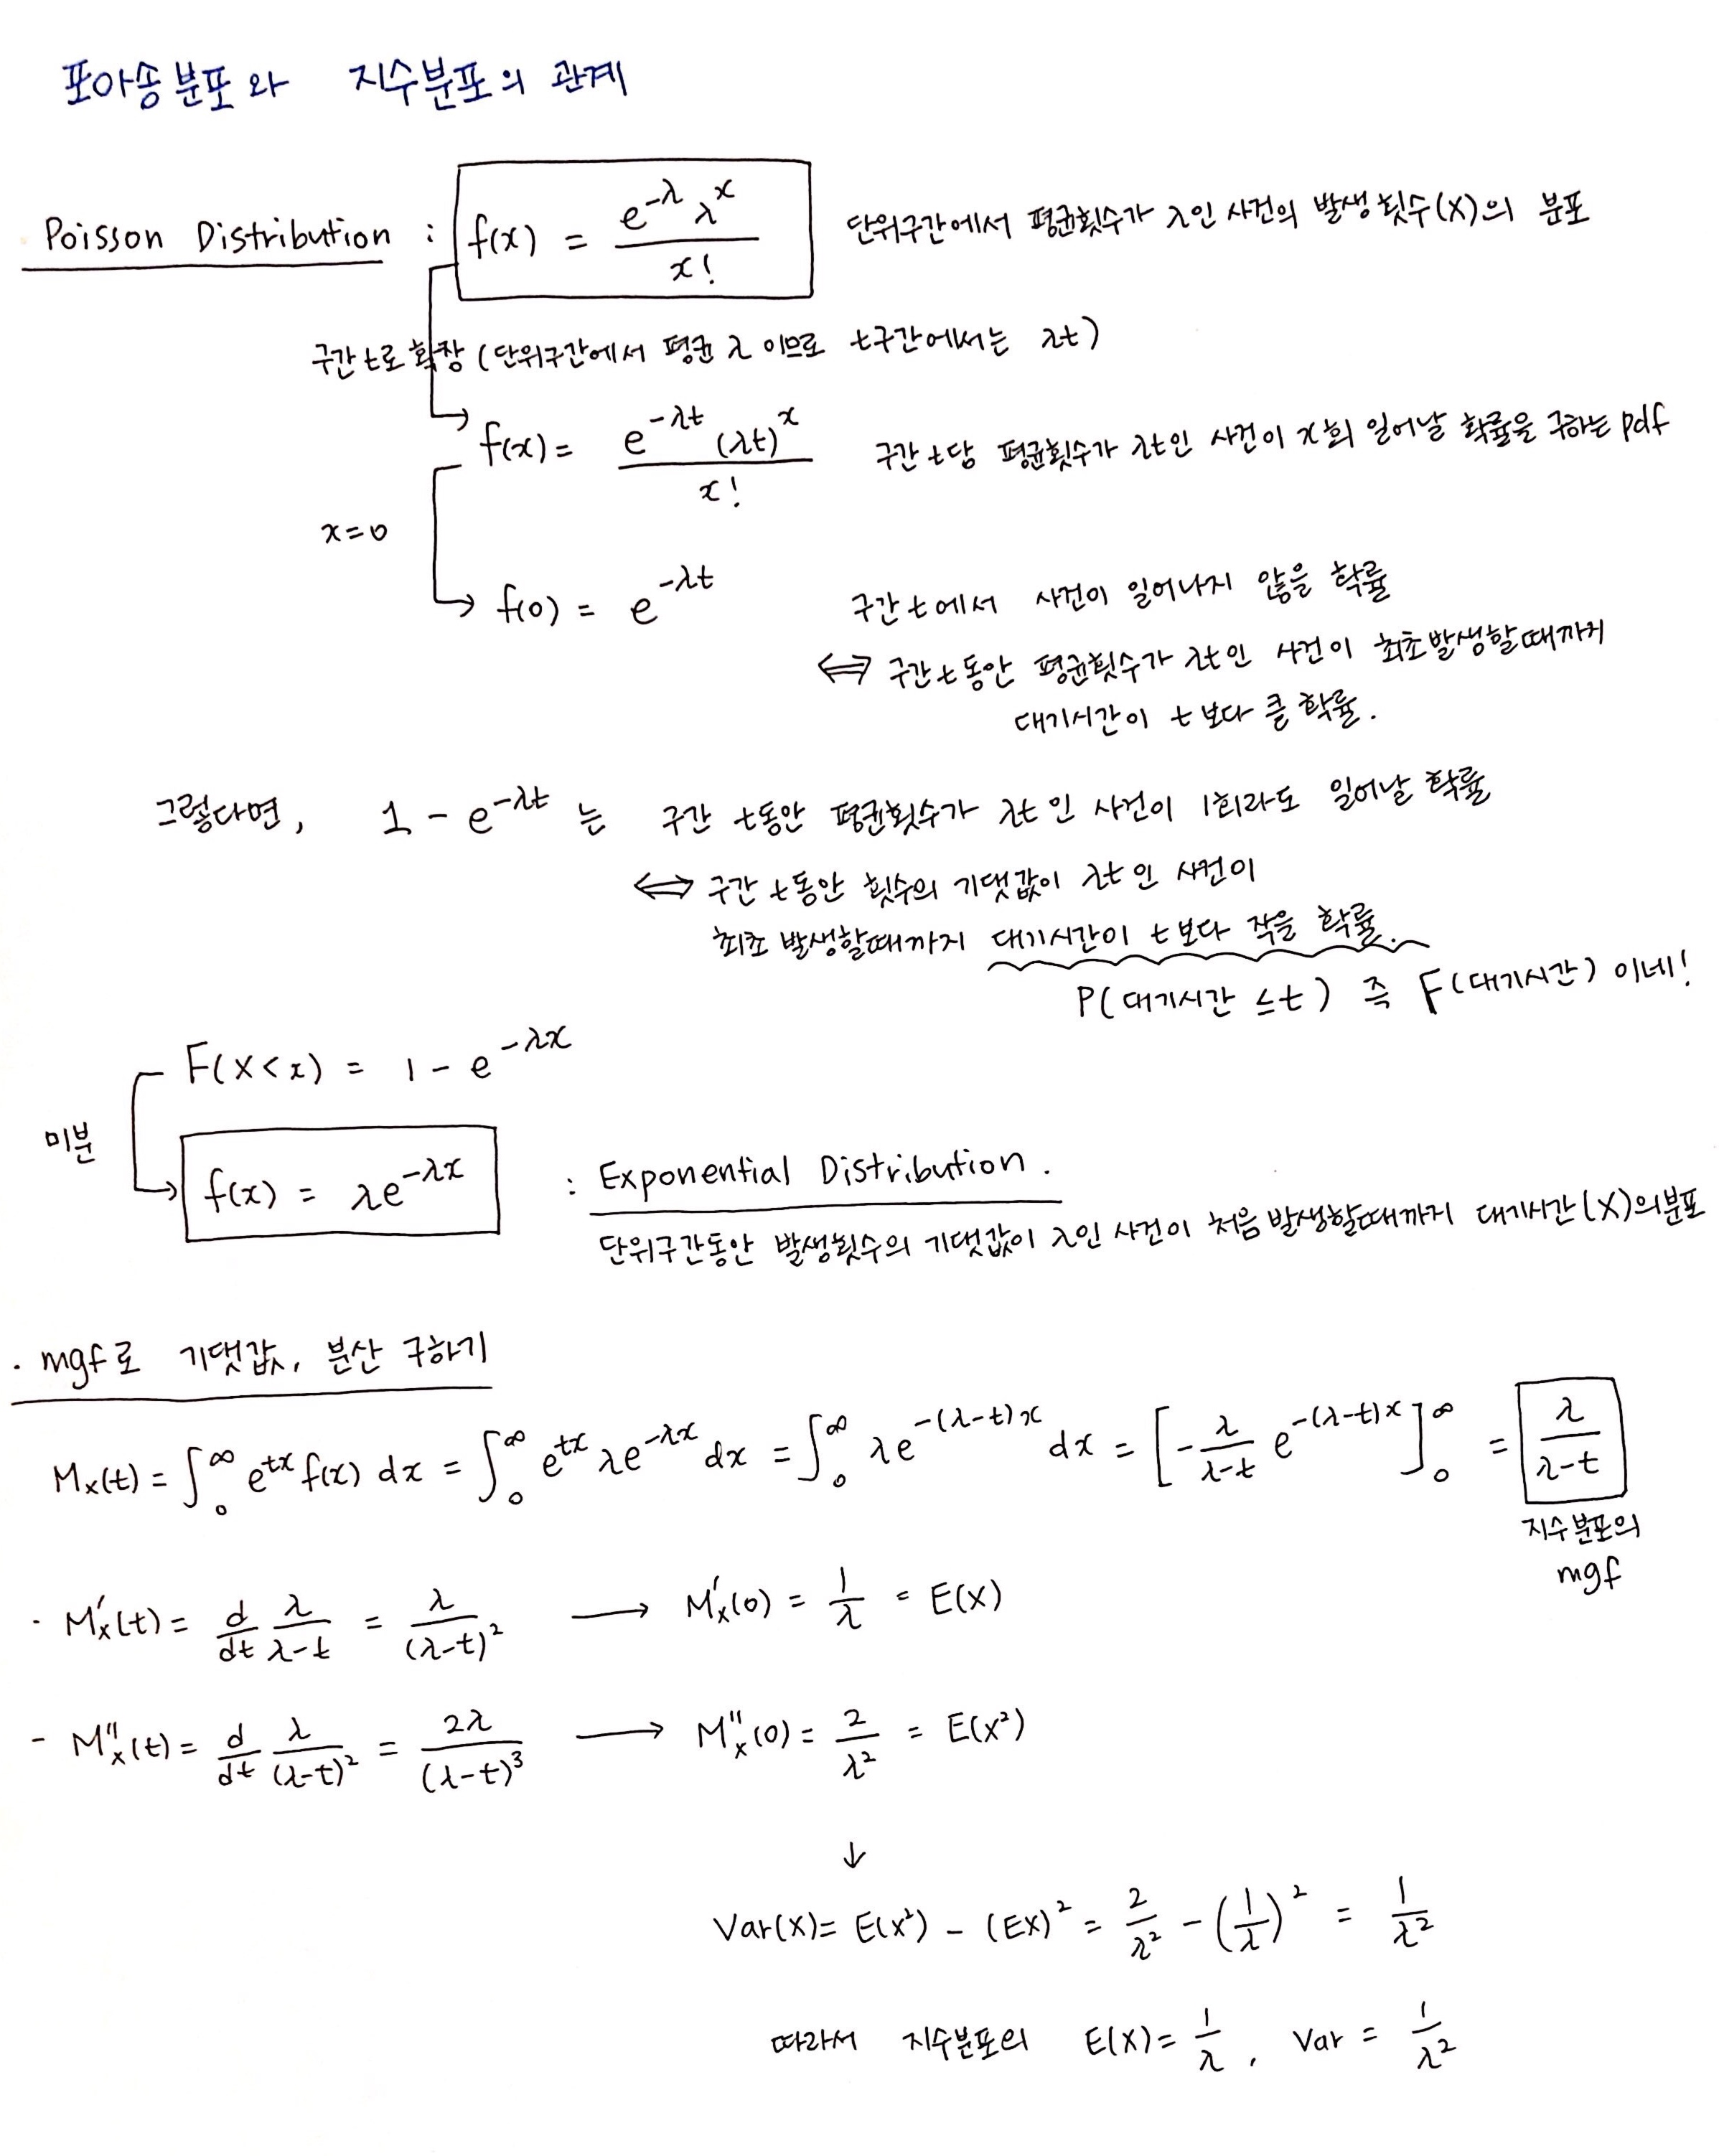 포아송분포와 지수분포의 관계
Poisson Distribution : f(x) = e^{-λ} λ^x / x! 단위구간에서 평균횟수가 λ인 사건의 발생횟수(X)의 분포
구간 t로 확장 (단위구간에서 평균 λ 이므로 t구간에서는 λt)
f(x) = e^{-λt} (λt)^x / x! 구간 t당 평균횟수가 λt인 사건이 x회 일어날 확률을 구하는 pdf
x=0
f(0) = e^{-λt} 구간 t에서 사건이 일어나지 않을 확률
⟺ 구간 t동안 평균횟수가 λt인 사건이 최초발생할때까지
대기시간이 t보다 클 확률.
그렇다면, 1 - e^{-λt} 는 구간 t동안 평균횟수가 λt인 사건이 1회라도 일어날 확률
⟺ 구간 t동안 횟수의 기댓값이 λt인 사건이
최초 발생할때까지 대기시간이 t보다 작을 확률.
P(대기시간 ≤t) 즉 F(대기시간)이네!
F(X<x) = 1 - e^{-λx}
미분
f(x) = λe^{-λx} : Exponential Distribution.
단위구간동안 발생횟수의 기댓값이 λ인 사건이 처음발생할때까지 대기시간(X)의분포
· mgf로 기댓값, 분산 구하기
M_x(t) = ∫_0^∞ e^{tx} f(x) dx = ∫_0^∞ e^{tx} λe^{-λx} dx = ∫_0^∞ λe^{-(λ-t)x} dx = [-λ/(λ-t) e^{-(λ-t)x}]_0^∞ = λ/(λ-t)
지수분포의
mgf
- M'_x(t) = d/dt λ/(λ-t) = λ/(λ-t)^2 ⟶ M'_x(0) = 1/λ = E(X)
- M''_x(t) = d/dt λ/(λ-t)^2 = 2λ/(λ-t)^3 ⟶ M''_x(0) = 2/λ^2 = E(X^2)
↓
Var(X) = E(X^2) - (EX)^2 = 2/λ^2 - (1/λ)^2 = 1/λ^2
따라서 지수분포의 E(X) = 1/λ, Var = 1/λ^2